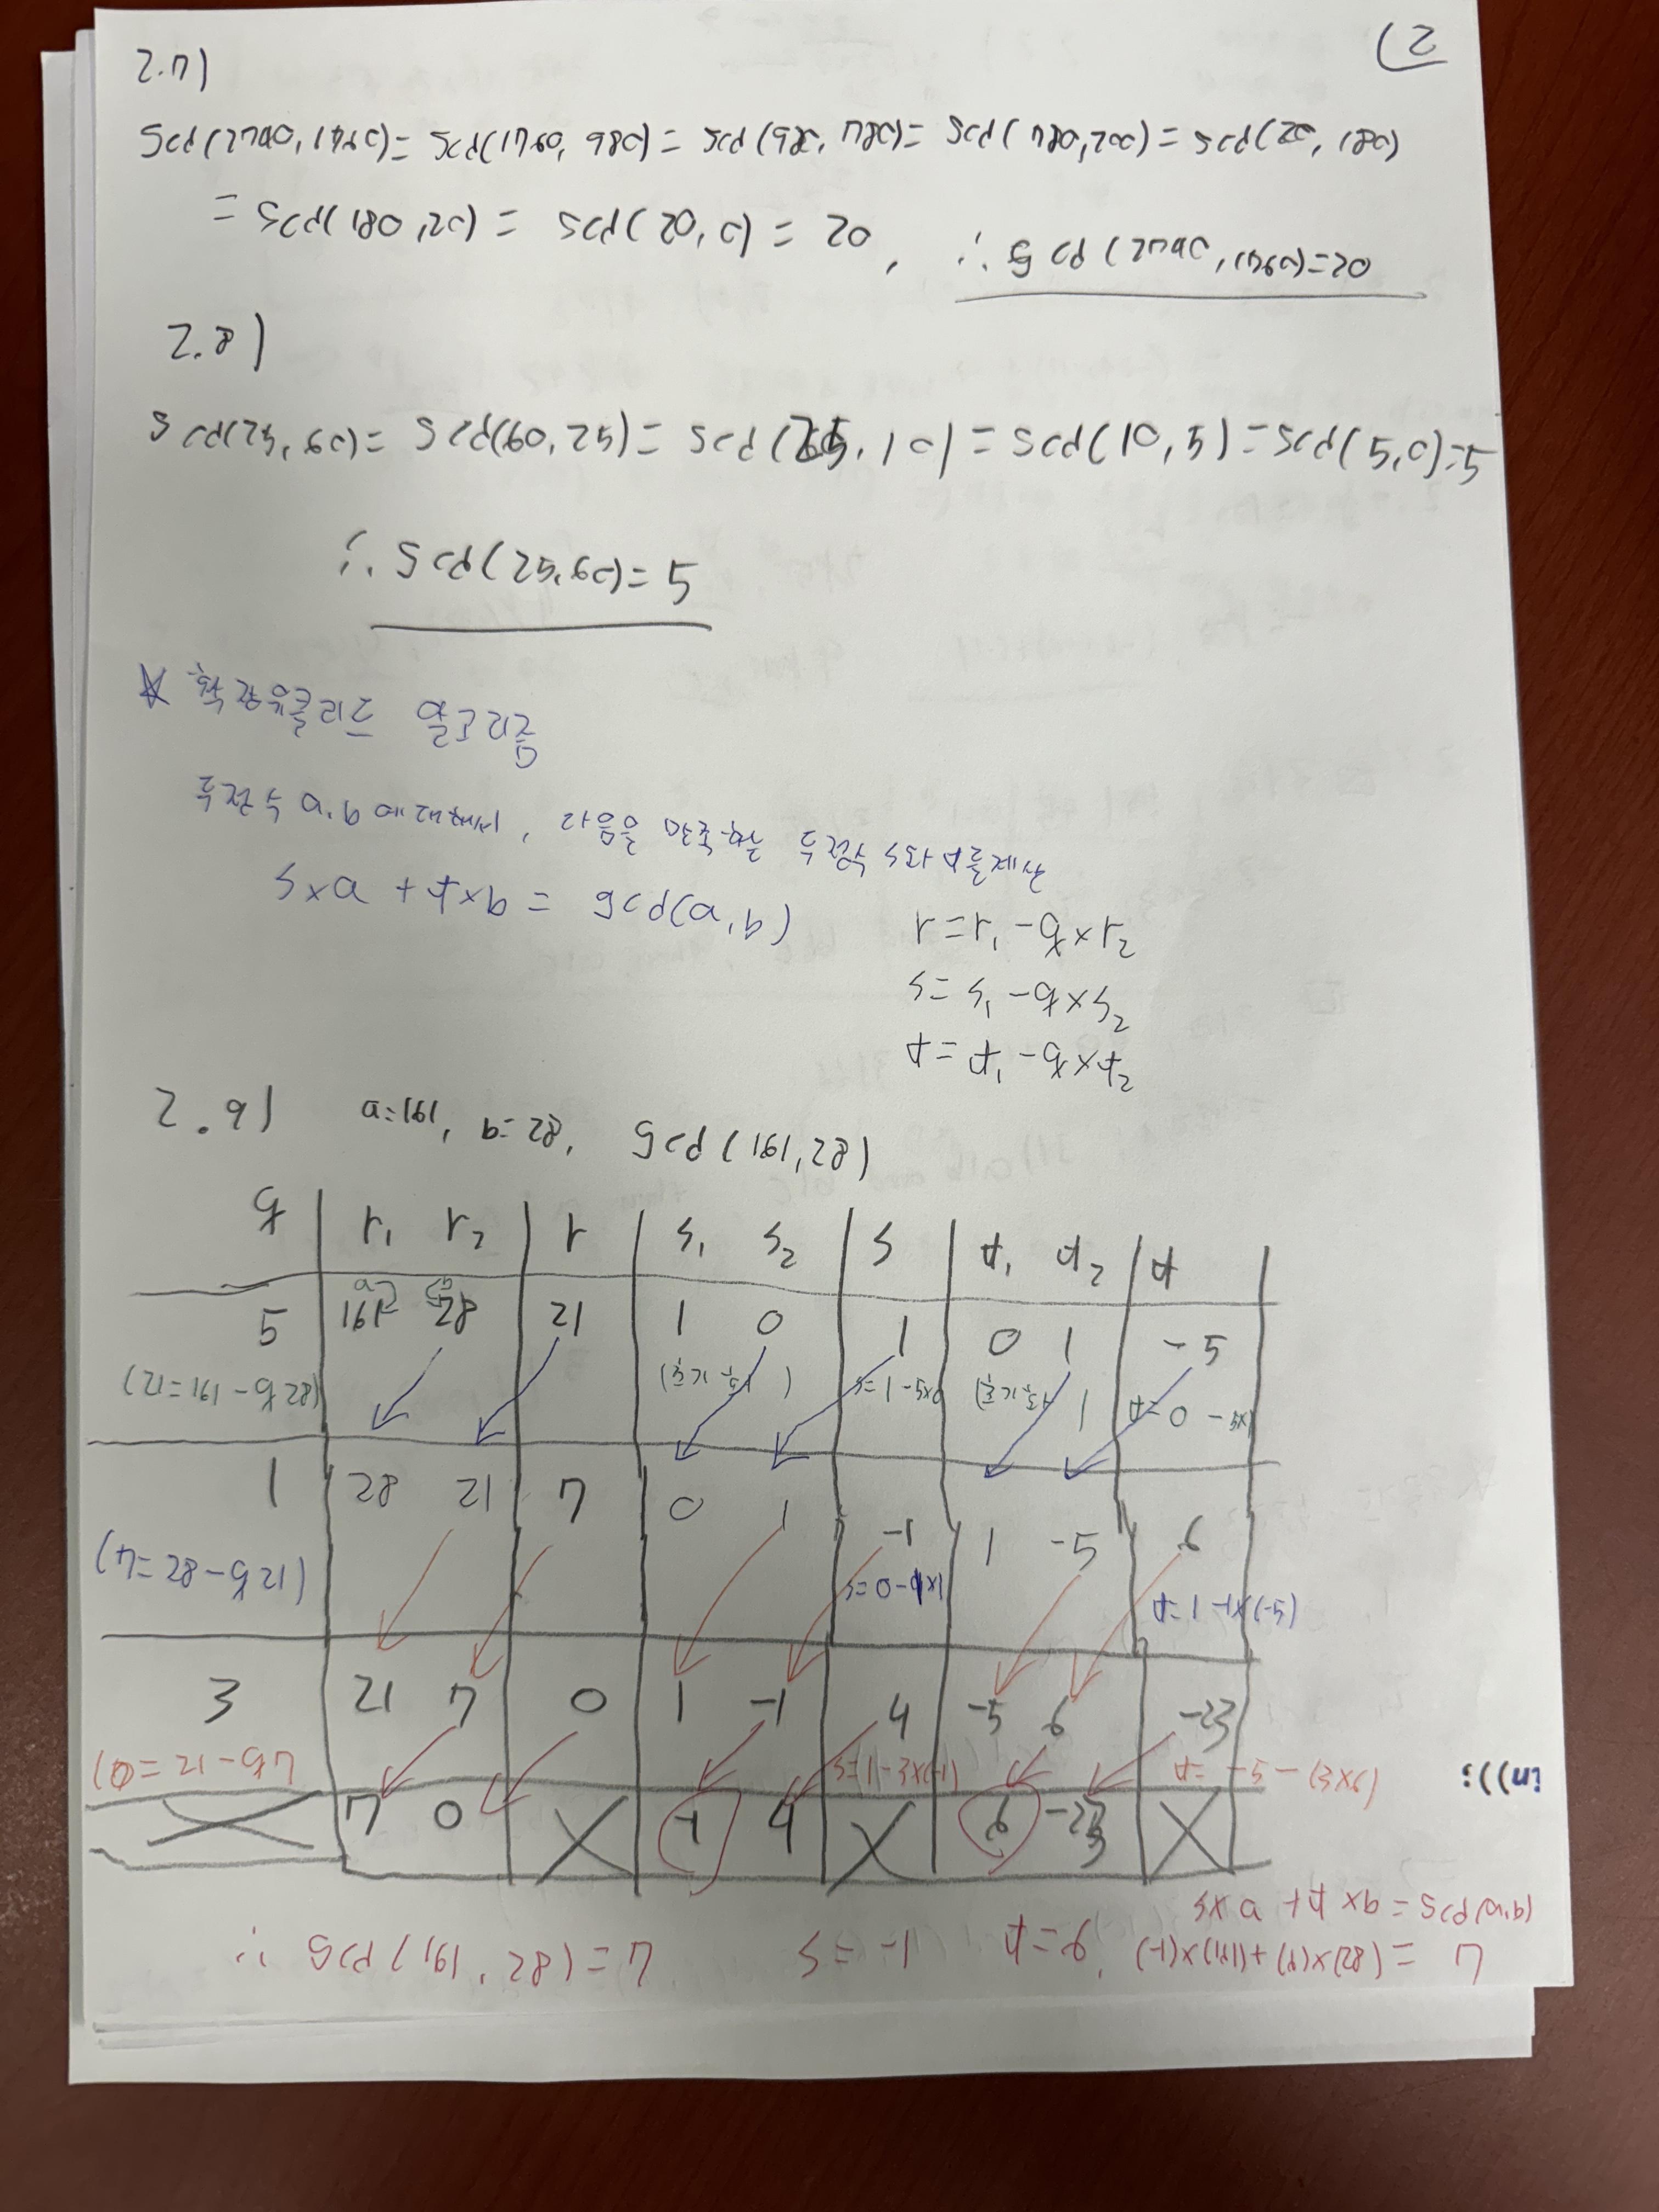 2)
2.7)
gcd(2740, 1760) = gcd(1760, 980) = gcd(980, 780) = gcd(780, 200) = gcd(200, 180)
= gcd(180, 20) = gcd(20, 0) = 20, ∴ gcd(2740, 1760) = 20
2.8)
gcd(25, 60) = gcd(60, 25) = gcd(25, 10) = gcd(10, 5) = gcd(5, 0) = 5
∴ gcd(25, 60) = 5
☆ 확장유클리드 알고리즘
두정수 a, b에 대해서, 다음을 만족하는 두정수 s와 t를 계산
s×a + t×b = gcd(a, b)
r = r₁ - q×r₂
s = s₁ - q×s₂
t = t₁ - q×t₂
2.9) a=161, b=28, gcd(161, 28)
q r₁ r₂ r s₁ s₂ s t₁ t₂ t
a b
5 161 28 21 1 0 1 0 1 -5
(21=161-q28) (초기값) s=1-5×0 (초기값) t=0-5×1
1 28 21 7 0 1 -1 1 -5 6
(7=28-q21) s=0-1×1 t=1-1×(-5)
3 21 7 0 1 -1 4 -5 6 -23
(0=21-q7) s=1-3×(-1) t=-5-(3×6)
7 0 -1 4 6 -23
s×a + t×b = gcd(a,b)
∴ gcd(161, 28) = 7 s=-1 t=6, (-1)×(161)+(6)×(28) = 7